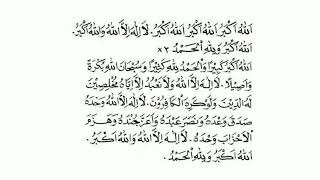 اَللهُ اَكْبَرُ اَللهُ اَكْبَرُ اَللهُ اَكْبَرُ. لَا اِلٰهَ اِلَّا اللهُ وَاللهُ اَكْبَرُ.
اَللهُ اَكْبَرُ وَلِلّٰهِ الْحَمْدُ ×٣
اَللهُ اَكْبَرُ كَبِيْرًا وَالْحَمْدُ لِلّٰهِ كَثِيْرًا وَسُبْحَانَ اللهِ بُكْرَةً
وَاَصِيْلًا. لَا اِلٰهَ اِلَّا اللهُ وَلَا نَعْبُدُ اِلَّا اِيَّاهُ مُخْلِصِيْنَ
لَهُ الدِّيْنَ وَلَوْكَرِهَ الْكَافِرُوْنَ. لَا اِلٰهَ اِلَّا اللهُ وَحْدَهُ
صَدَقَ وَعْدَهُ وَنَصَرَ عَبْدَهُ وَاَعَزَّ جُنْدَهُ وَهَزَمَ
الْاَحْزَابَ وَحْدَهُ. لَا اِلٰهَ اِلَّا اللهُ وَاللهُ اَكْبَرُ.
اَللهُ اَكْبَرُ وَلِلّٰهِ الْحَمْدُ.